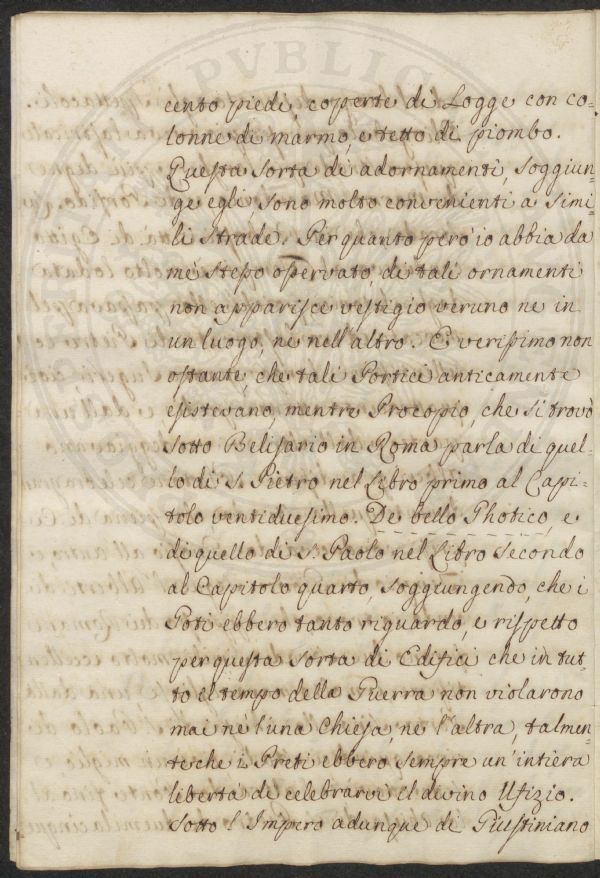 cento piedi, coperte di Logge con co=
lonne di marmo, e tetto di piombo.
Questa sorta di adornamenti, soggiun-
ge egli, sono molto convenienti a simi-
li strade. Per quanto però io abbia da
me stesso osservato, di tali ornamenti
non apparisce vestigio veruno ne in
un luogo, ne nell'altro. E verissimo non
ostante, che tali Portici anticamente
esistevano, mentre Procopio, che si trovò
sotto Belisario in Roma parla di quel-
lo di S. Pietro nel Libro primo al Capi-
tolo ventiduesimo. De bello Ghotico, e
di quello di S. Paolo nel Libro secondo
al Capitolo quarto, soggiungendo, che i
Goti ebbero tanto riguardo, e rispetto
per questa sorta di Edifici che in tut-
to il tempo della Guerra non violarono
mai nè l'una Chiesa, ne l'altra, talmen-
te che i Preti ebbero sempre un'intiera
libertà di celebrarvi il divino Ufizio.
Sotto l'Impero adunque di Giustiniano